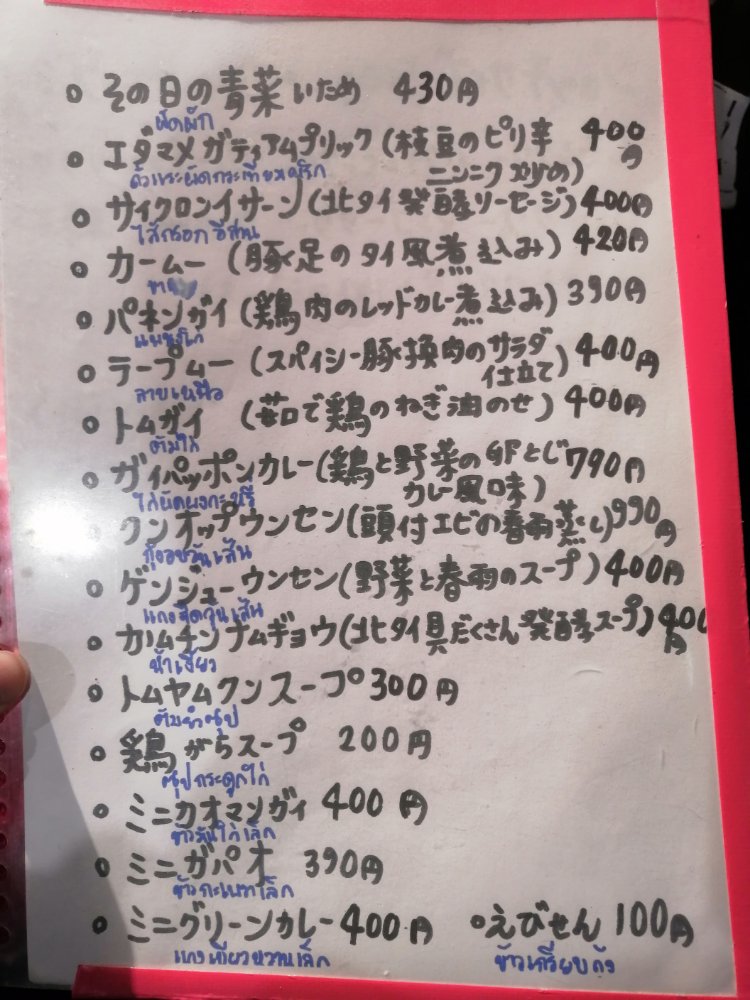 その日の青菜いため 430円
ผัดผัก
エダマメガティアムプリック(枝豆のピリ辛 400円
ニンニク炒め)
ถั่วแระผัดกระเทียมพริก
サイクロンイサーン(北タイ発酵ソーセージ)400円
ไส้กรอกอีสาน
カームー(豚足のタイ風煮込み)420円
ขาหมู
パネンガイ(鶏肉のレッドカレー煮込み)390円
แพนงไก่
ラープムー(スパイシー豚挽肉のサラダ 400円
仕立て)
ลาบเหนือ
トムガイ (茹で鶏のねぎ油のせ)400円
ต้มไก่
ガイパッポンカレー(鶏と野菜の卵とじ790円
カレー風味)
ไก่ผัดผงกะหรี่
クンオップウンセン(頭付エビの春雨蒸し)990円
กุ้งอบวุ้นเส้น
ゲンジューウンセン(野菜と春雨のスープ)400円
แกงจืดวุ้นเส้น
カノムチンナムギョウ(北タイ具だくさん発酵スープ)400円
น้ำเงี้ยว
トムヤムクンスープ300円
ต้มยำซุป
鶏がらスープ 200円
ซุปกระดูกไก่
ミニカオマンガイ 400円
ข้าวมันไก่เล็ก
ミニガパオ 390円
ข้าวกะเพราเล็ก
ミニグリーンカレー400円 えびせん 100円
แกงเขียวหวานเล็ก ข้าวเกรียบกุ้ง